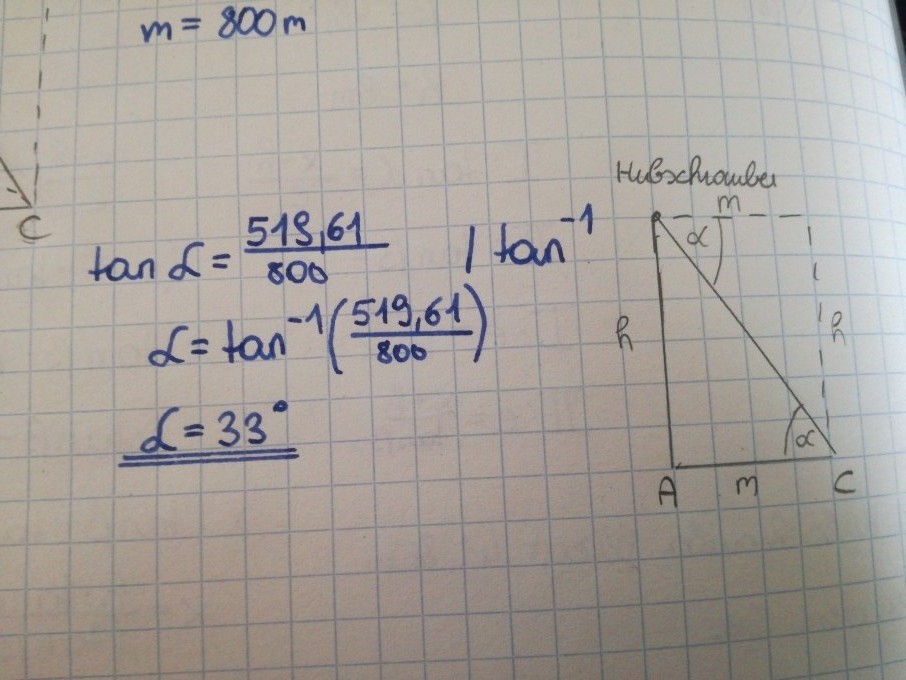 m = 800m
C
tan α = 519,61 / 800 | tan⁻¹
α = tan⁻¹ (519,61 / 800)
α = 33°
Hubschrauber
m
α
h
h
α
A m C